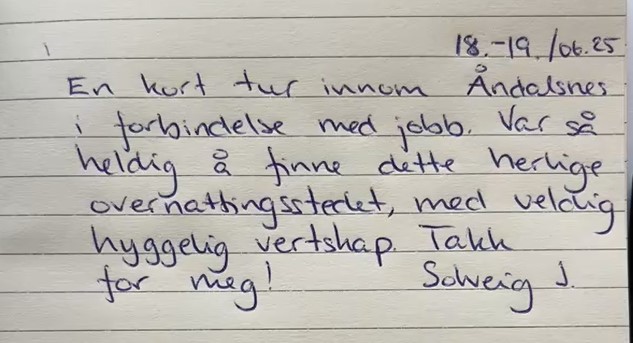 18.-19./06.25
En kort tur innom Åndalsnes
i forbindelse med jobb. Var så
heldig å finne dette herlige
overnattingsstedet, med veldig
hyggelig vertshap. Takk
for meg! Solveig J.